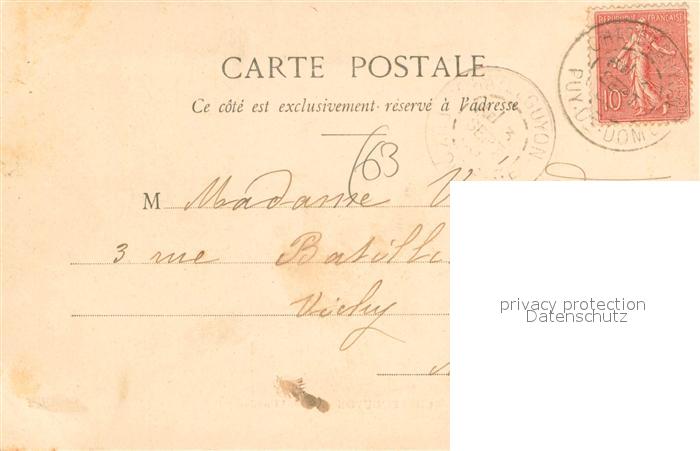 REPUBLIQUE FRANÇAISE
10
PUY-DE-DOME
GUYON
CARTE POSTALE
Ce côté est exclusivement réservé à l'adresse
63
M Madame V
3 rue
Vichy
privacy protection
Datenschutz